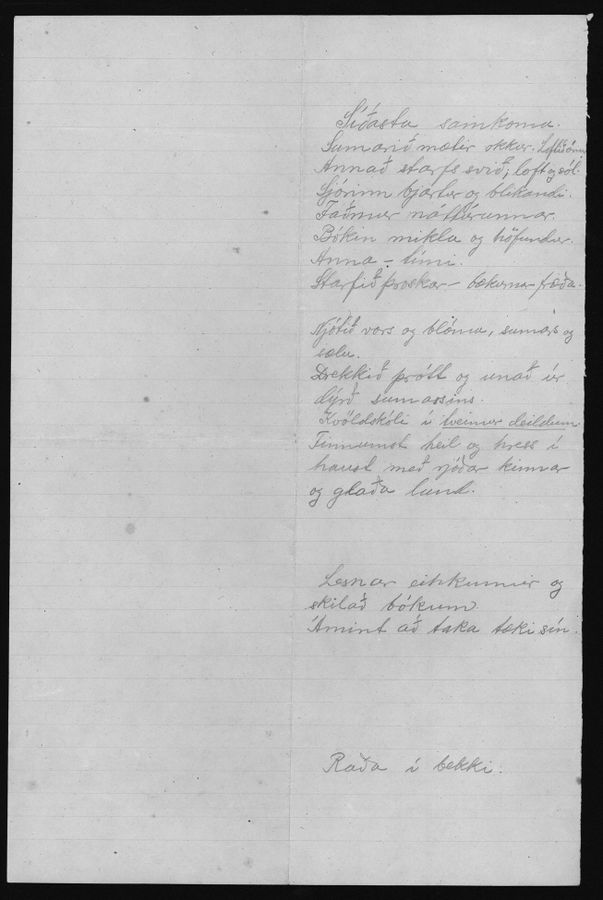 Síðasta samkoma.
Sumarið mætir okkur. Loftið óm
Annað starfssvið, loft og sól.
Sjórinn bjartur og blikandi.
Faðmur náttúrunnar.
Bókin mikla og höfundur.
Anna - tími.
Starfið þroskar - bækurnar fræða.
Njótið vors og blóma, sumars og
sælu.
Drekkið þrótt og unað úr
dýrð sumarsins.
Kvöldskóli í tveimur deildum.
Finnumst heil og hress í
haust með rjóðar kinnar
og glaða lund.
Lesnar einkunnir og
skilað bókum.
Ámint að taka tæki sín.
Raða í bekki.